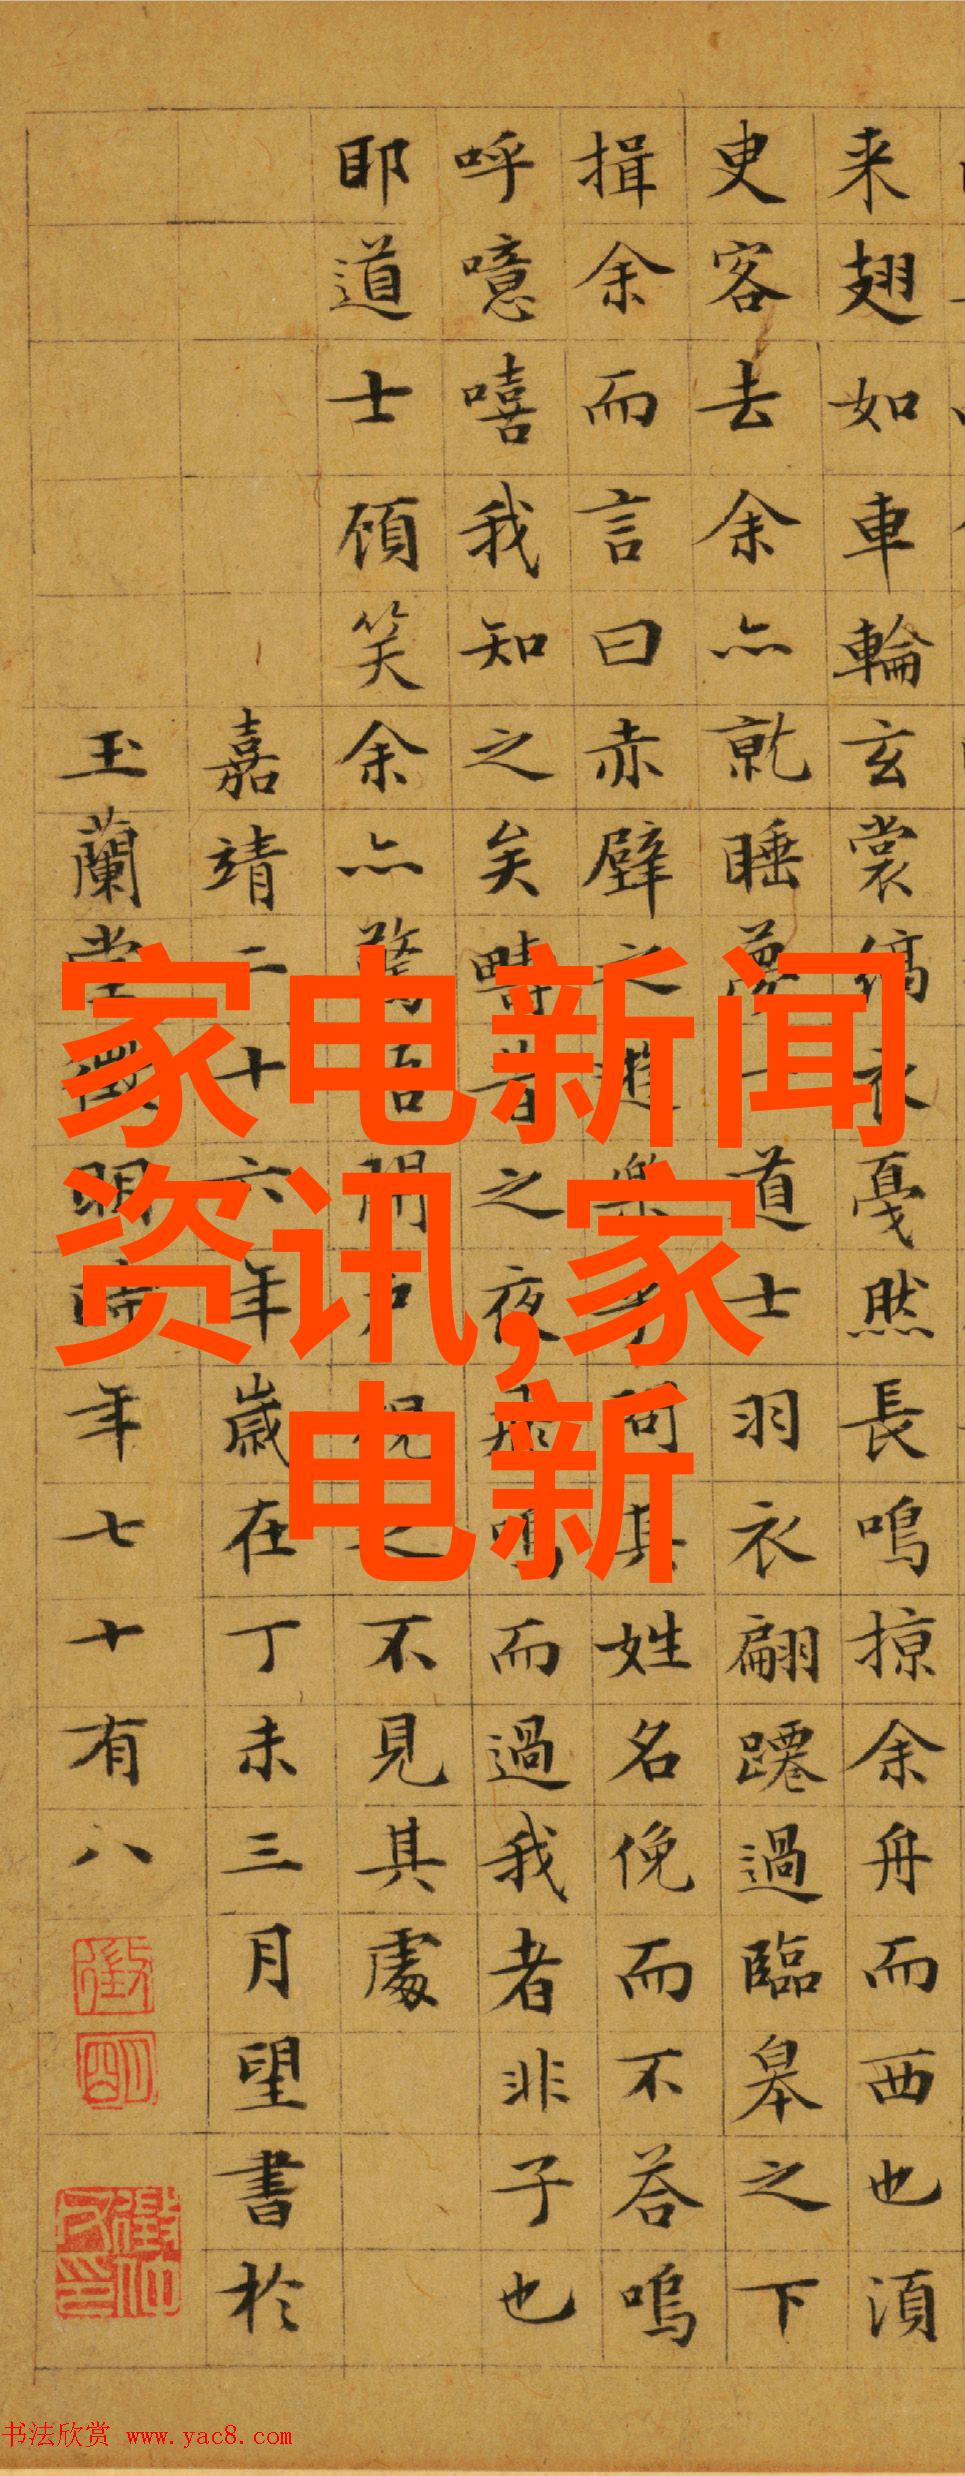 来翅如車輪玄裳縞衣戛然長鳴掠余舟而西也湏
臾客去余亦就睡夢一道士羽衣翩躚過臨臯之下
揖余而言曰赤壁之遊樂乎問其姓名俛而不荅嗚
呼噫嘻我知之矣疇昔之夜飛鳴而過我者非子也
耶道士顧笑余亦驚悟開戶視之不見其處
嘉靖二十六年歲在丁未三月望書於
玉蘭堂徵明時年七十有八
徵
明
家电新闻
资讯,家
电新
书法欣赏 www.yac8.com